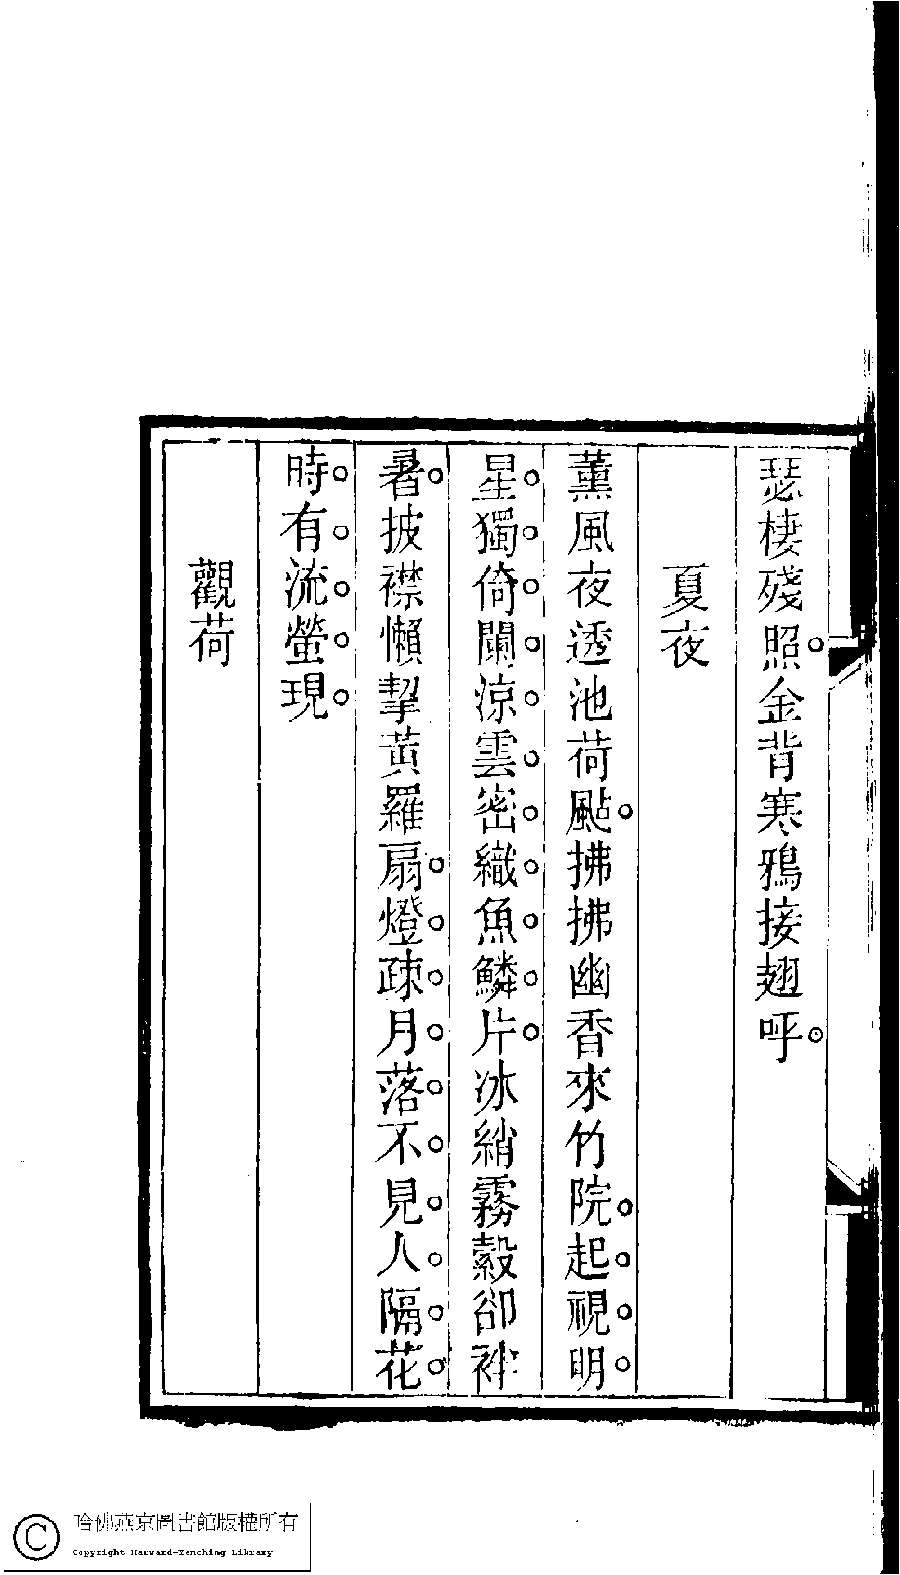 瑟棲殘照。金背寒鴉接翅呼。
夏夜
薰風夜透池荷颭。拂拂幽香來竹院。起。視。明。
星。獨。倚。闌。涼。雲。密。織。魚。鱗。片。冰綃霧縠卻袢
暑。披襟懶挈黃羅扇。燈。疎。月。落。不。見。人。隔。花。
時。有。流。螢。現。
觀荷
哈佛燕京圖書館版權所有
Copyright Harvard-Yenching Library